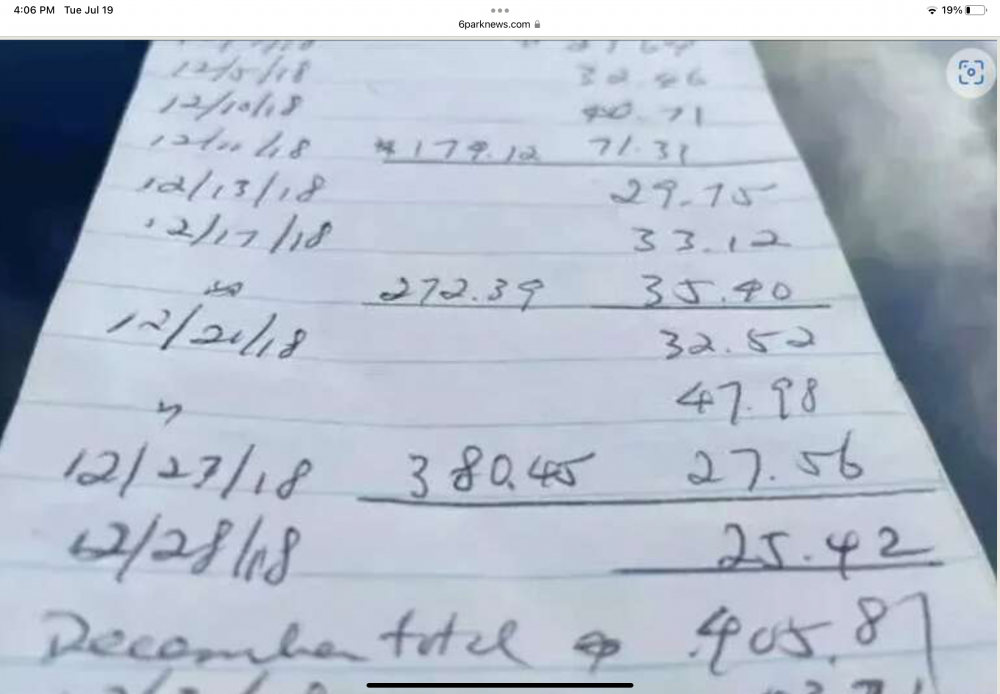 4:06 PM Tue Jul 19
19%
6parknews.com
12/5/18 32.46
12/10/18 40.71
12/11/18 179.12 71.31
12/13/18 29.75
12/17/18 33.12
" 272.39 35.40
12/21/18 32.52
" 47.98
12/27/18 380.45 27.56
12/28/18 25.42
December total 405.87